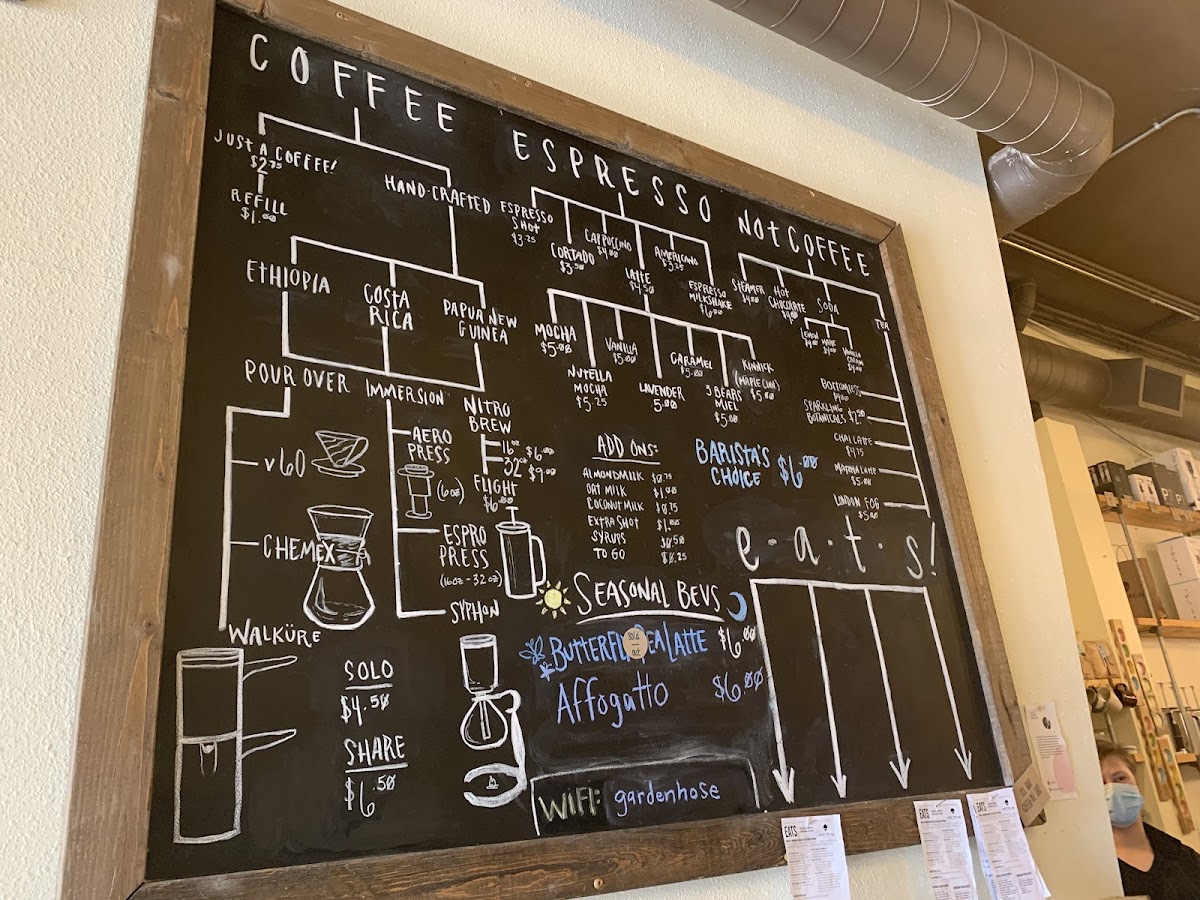 COFFEE
JUST A COFFEE!
$2.75
REFILL
$1.00
HAND-CRAFTED
ETHIOPIA
COSTA
RICA
PAPUA NEW
GUINEA
POUR OVER
V60
CHEMEX
WALKÜRE
IMMERSION
AERO
PRESS
(6oz)
ESPRO
PRESS
(16oz - 32oz)
SYPHON
NITRO
BREW
16oz $6.00
32oz $9.00
FLIGHT
$6.00
SOLO
$4.50
SHARE
$6.50
ESPRESSO
ESPRESSO
SHOT
$3.25
CORTADO
$3.50
CAPPUCCINO
$4.00
LATTE
$4.50
AMERICANO
$3.25
ESPRESSO
MILKSHAKE
$6.00
MOCHA
$5.00
NUTELLA
MOCHA
$5.25
VANILLA
$5.00
LAVENDER
5.00
CARAMEL
$5.00
3 BEARS
MIEL
$5.00
KINNICK
$5.00
ADD ONS
ALMONDMILK $0.75
OAT MILK $1.00
COCONUTMILK $0.75
EXTRA SHOT $1.00
SYRUPS $0.50
TO GO $0.25
BARISTA'S
CHOICE $6.00
SEASONAL BEVS
BUTTERFLY PEA LATTE $6.00
sold
out
Affogatto $6.00
WIFI: gardenhose
NOT COFFEE
STEAMER
$4.00
HOT
CHOCOLATE
$4.00
SODA
LEMON
$4.00
$4.00
VANILLA
CREAM
$4.00
TEA
BOTTOMLESS
$4.00
SPARKLING
BOTANICALS $2.50
CHAI LATTE
$4.75
MATCHA LATTE
$5.00
LONDON FOG
$5.00
e·a·t·s!
EATS
EATS
EATS